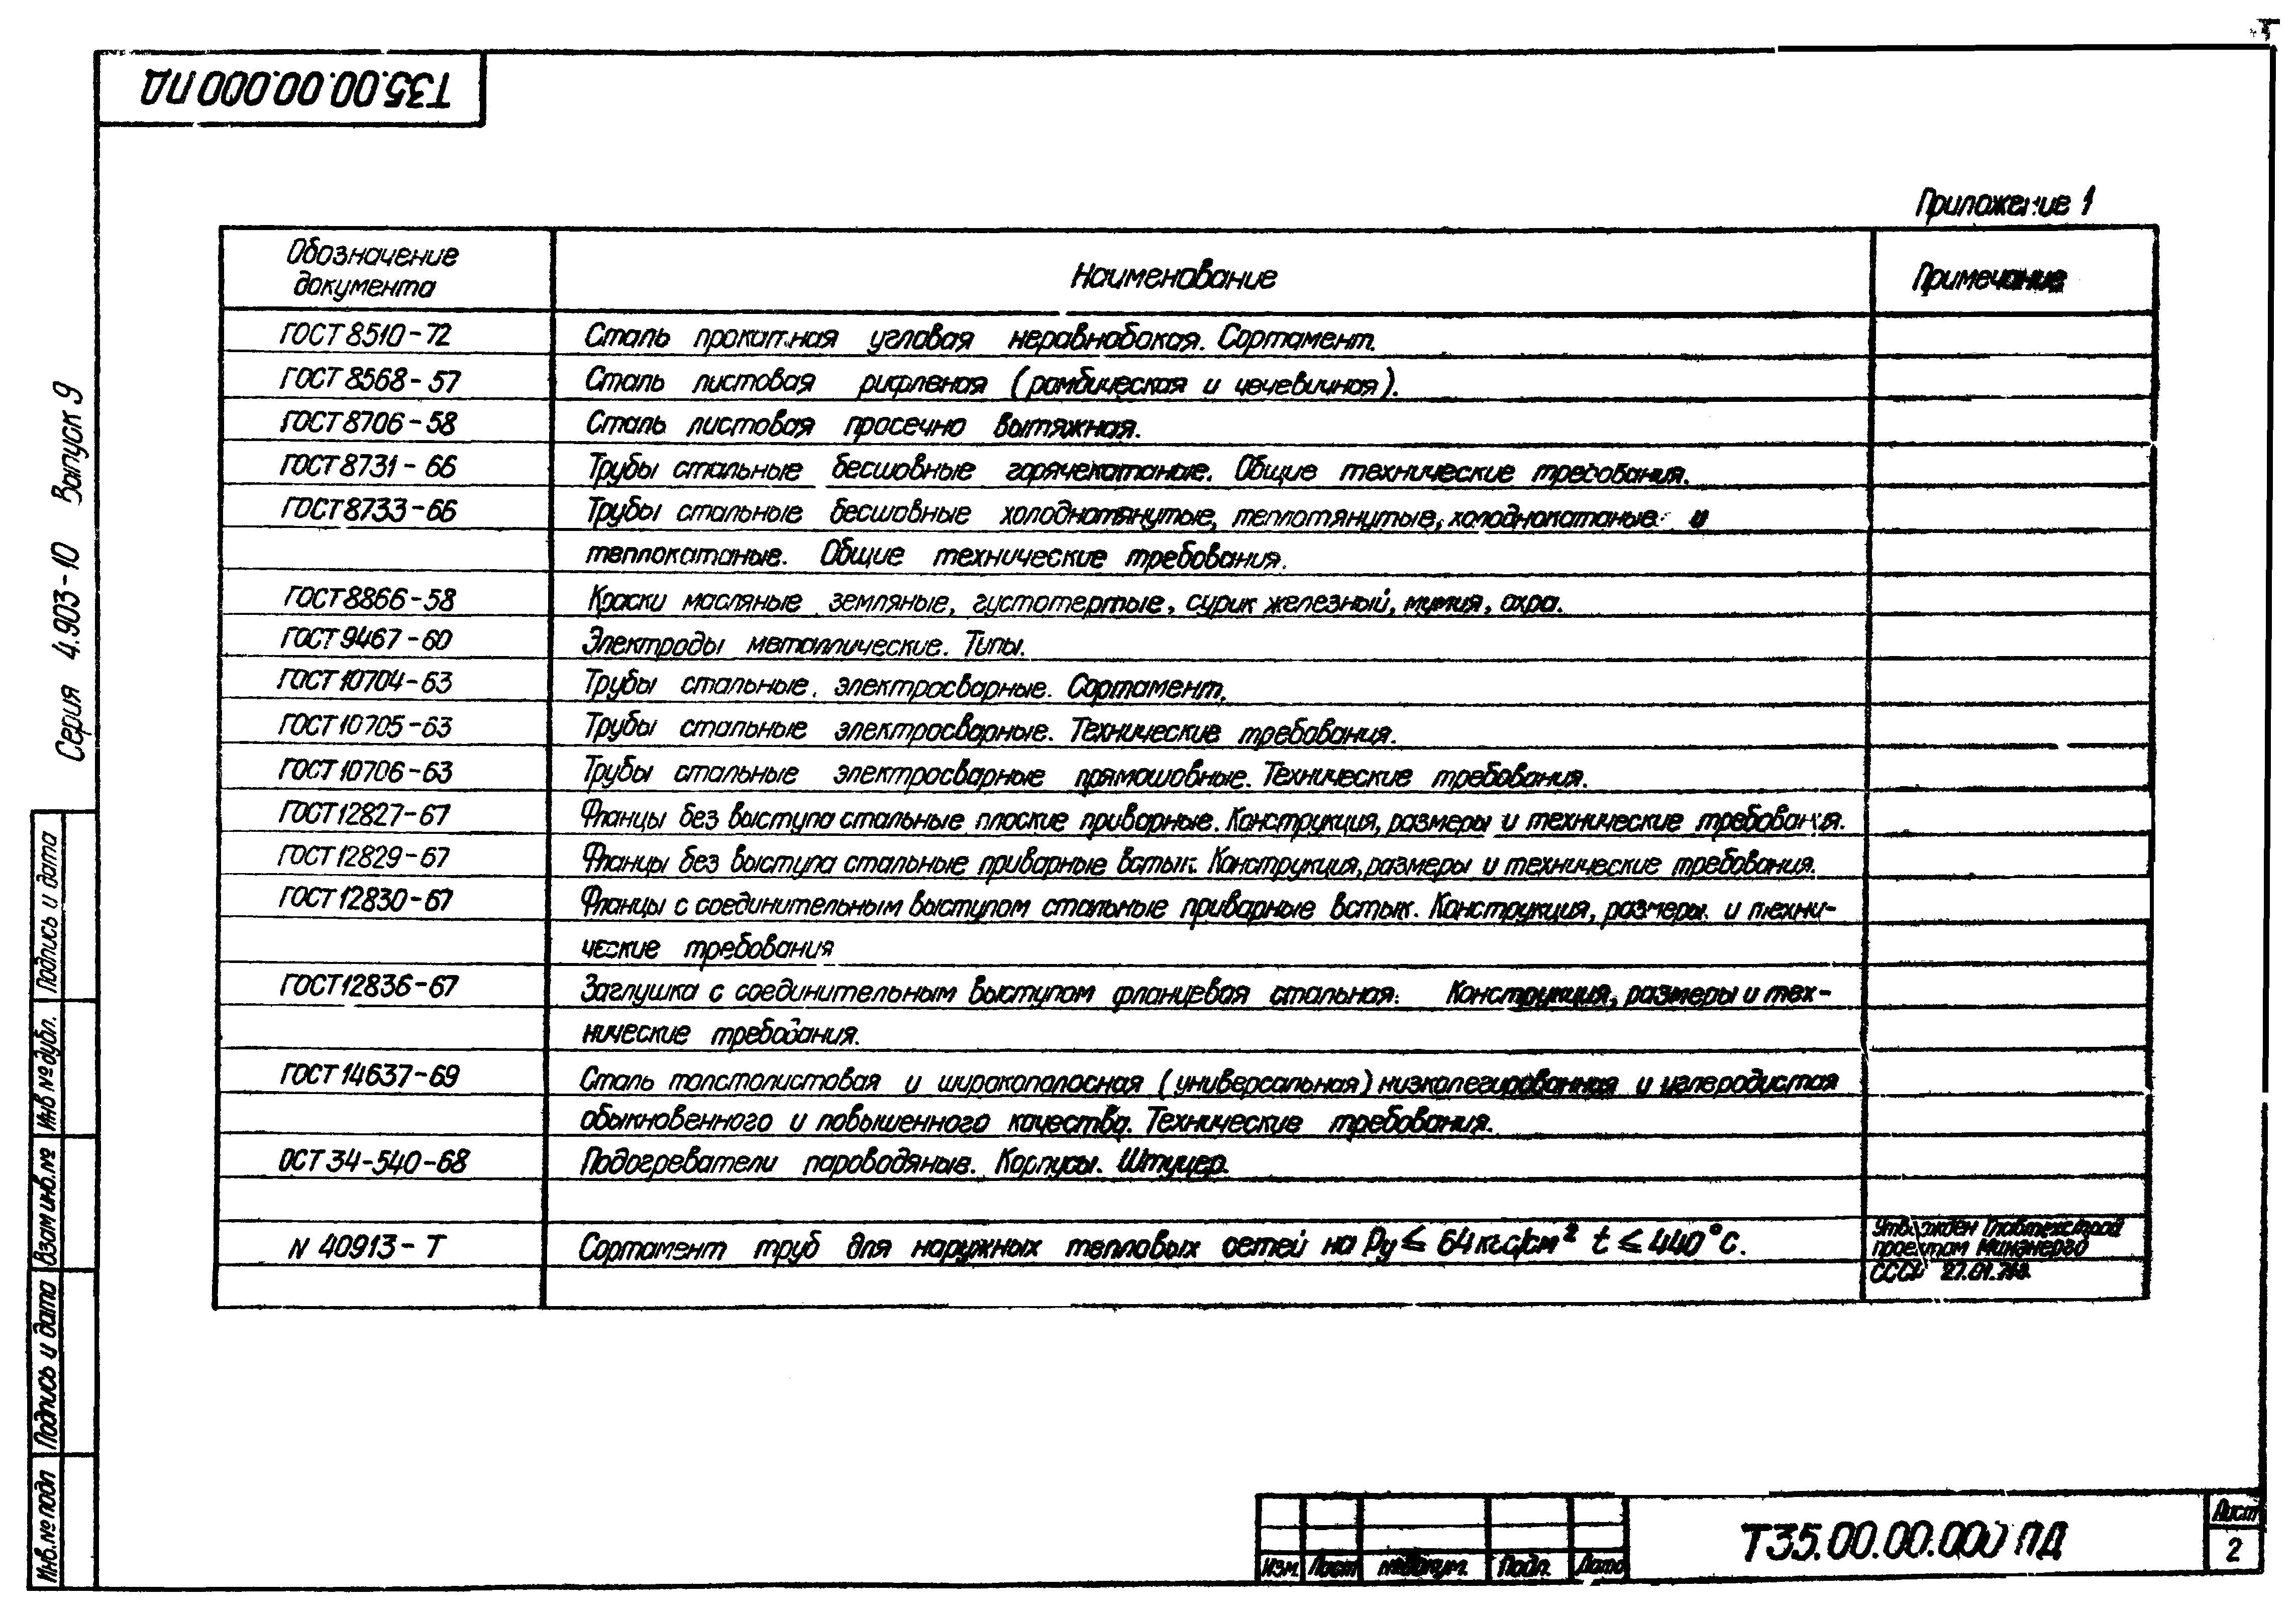 Т35.00.00.000 ПД
Приложение 1
Обозначение документа
Наименование
Примечание
ГОСТ 8510-72 Сталь прокатная угловая неравнобокая. Сортамент.
ГОСТ 8568-57 Сталь листовая рифленая (ромбическая и чечевичная).
ГОСТ 8706-58 Сталь листовая просечно вытяжная.
ГОСТ 8731-66 Трубы стальные бесшовные горячекатаные. Общие технические требования.
ГОСТ 8733-66 Трубы стальные бесшовные холоднотянутые, теплотянутые, холоднокатаные и
теплокатаные. Общие технические требования.
ГОСТ 8866-58 Краски масляные земляные, густотертые, сурик железный, мумия, охра.
ГОСТ 9467-60 Электроды металлические. Типы.
ГОСТ 10704-63 Трубы стальные электросварные. Сортамент.
ГОСТ 10705-63 Трубы стальные электросварные. Технические требования.
ГОСТ 10706-63 Трубы стальные электросварные прямошовные. Технические требования.
ГОСТ 12827-67 Фланцы без выступа стальные плоские приварные. Конструкция, размеры и технические требования.
ГОСТ 12829-67 Фланцы без выступа стальные приварные встык. Конструкция, размеры и технические требования.
ГОСТ 12830-67 Фланцы с соединительным выступом стальные приварные встык. Конструкция, размеры и техни-
ческие требования
ГОСТ 12836-67 Заглушка с соединительным выступом фланцевая стальная. Конструкция, размеры и тех-
нические требования.
ГОСТ 14637-69 Сталь толстолистовая и широкополосная (универсальная) низколегированная и углеродистая
обыкновенного и повышенного качества. Технические требования.
ОСТ 34-540-68 Подогреватели пароводяные. Корпусы. Штуцер.
N 40913-Т Сортамент труб для наружных тепловых сетей на Ру ≤ 64 кгс/см² t ≤ 440°С.
Утвержден Главтехстрой
проектом Минэнерго
СССР 27.01.
Серия 4.903-10 Выпуск 9
Подпись и дата
Инв № дубл.
Взам инв. №
Подпись и дата
Инв. № подл
Изм. Лист № Докум. Подп. Дата
Т35.00.00.000 ПД
Лист
2